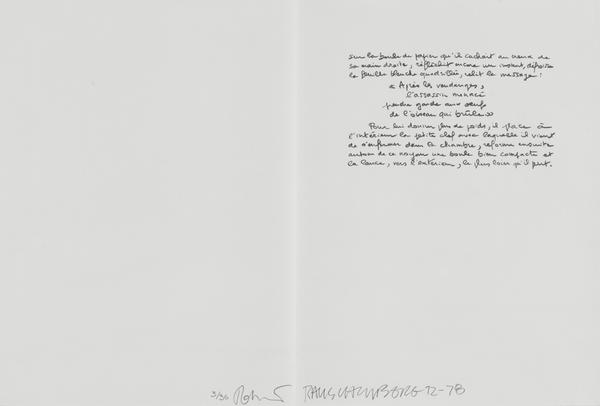 sur la boule de papier qu'il cachait au creux de
sa main droite, réfléchit encore un instant, défroisse
la feuille blanche quadrillée, relit le message :
« Après les vendanges,
l'assassin menacé
prendra garde aux œufs
de l'oiseau qui brûle »
Pour lui donner plus de poids, il place à
l'intérieur la petite clef avec laquelle il vient
de s'enfermer dans la chambre, reforme ensuite
autour de ce noyau une boule bien compacte et
la lance, vers l'extérieur, le plus loin qu'il peut.
3/36 RAUSCHENBERG 12-78